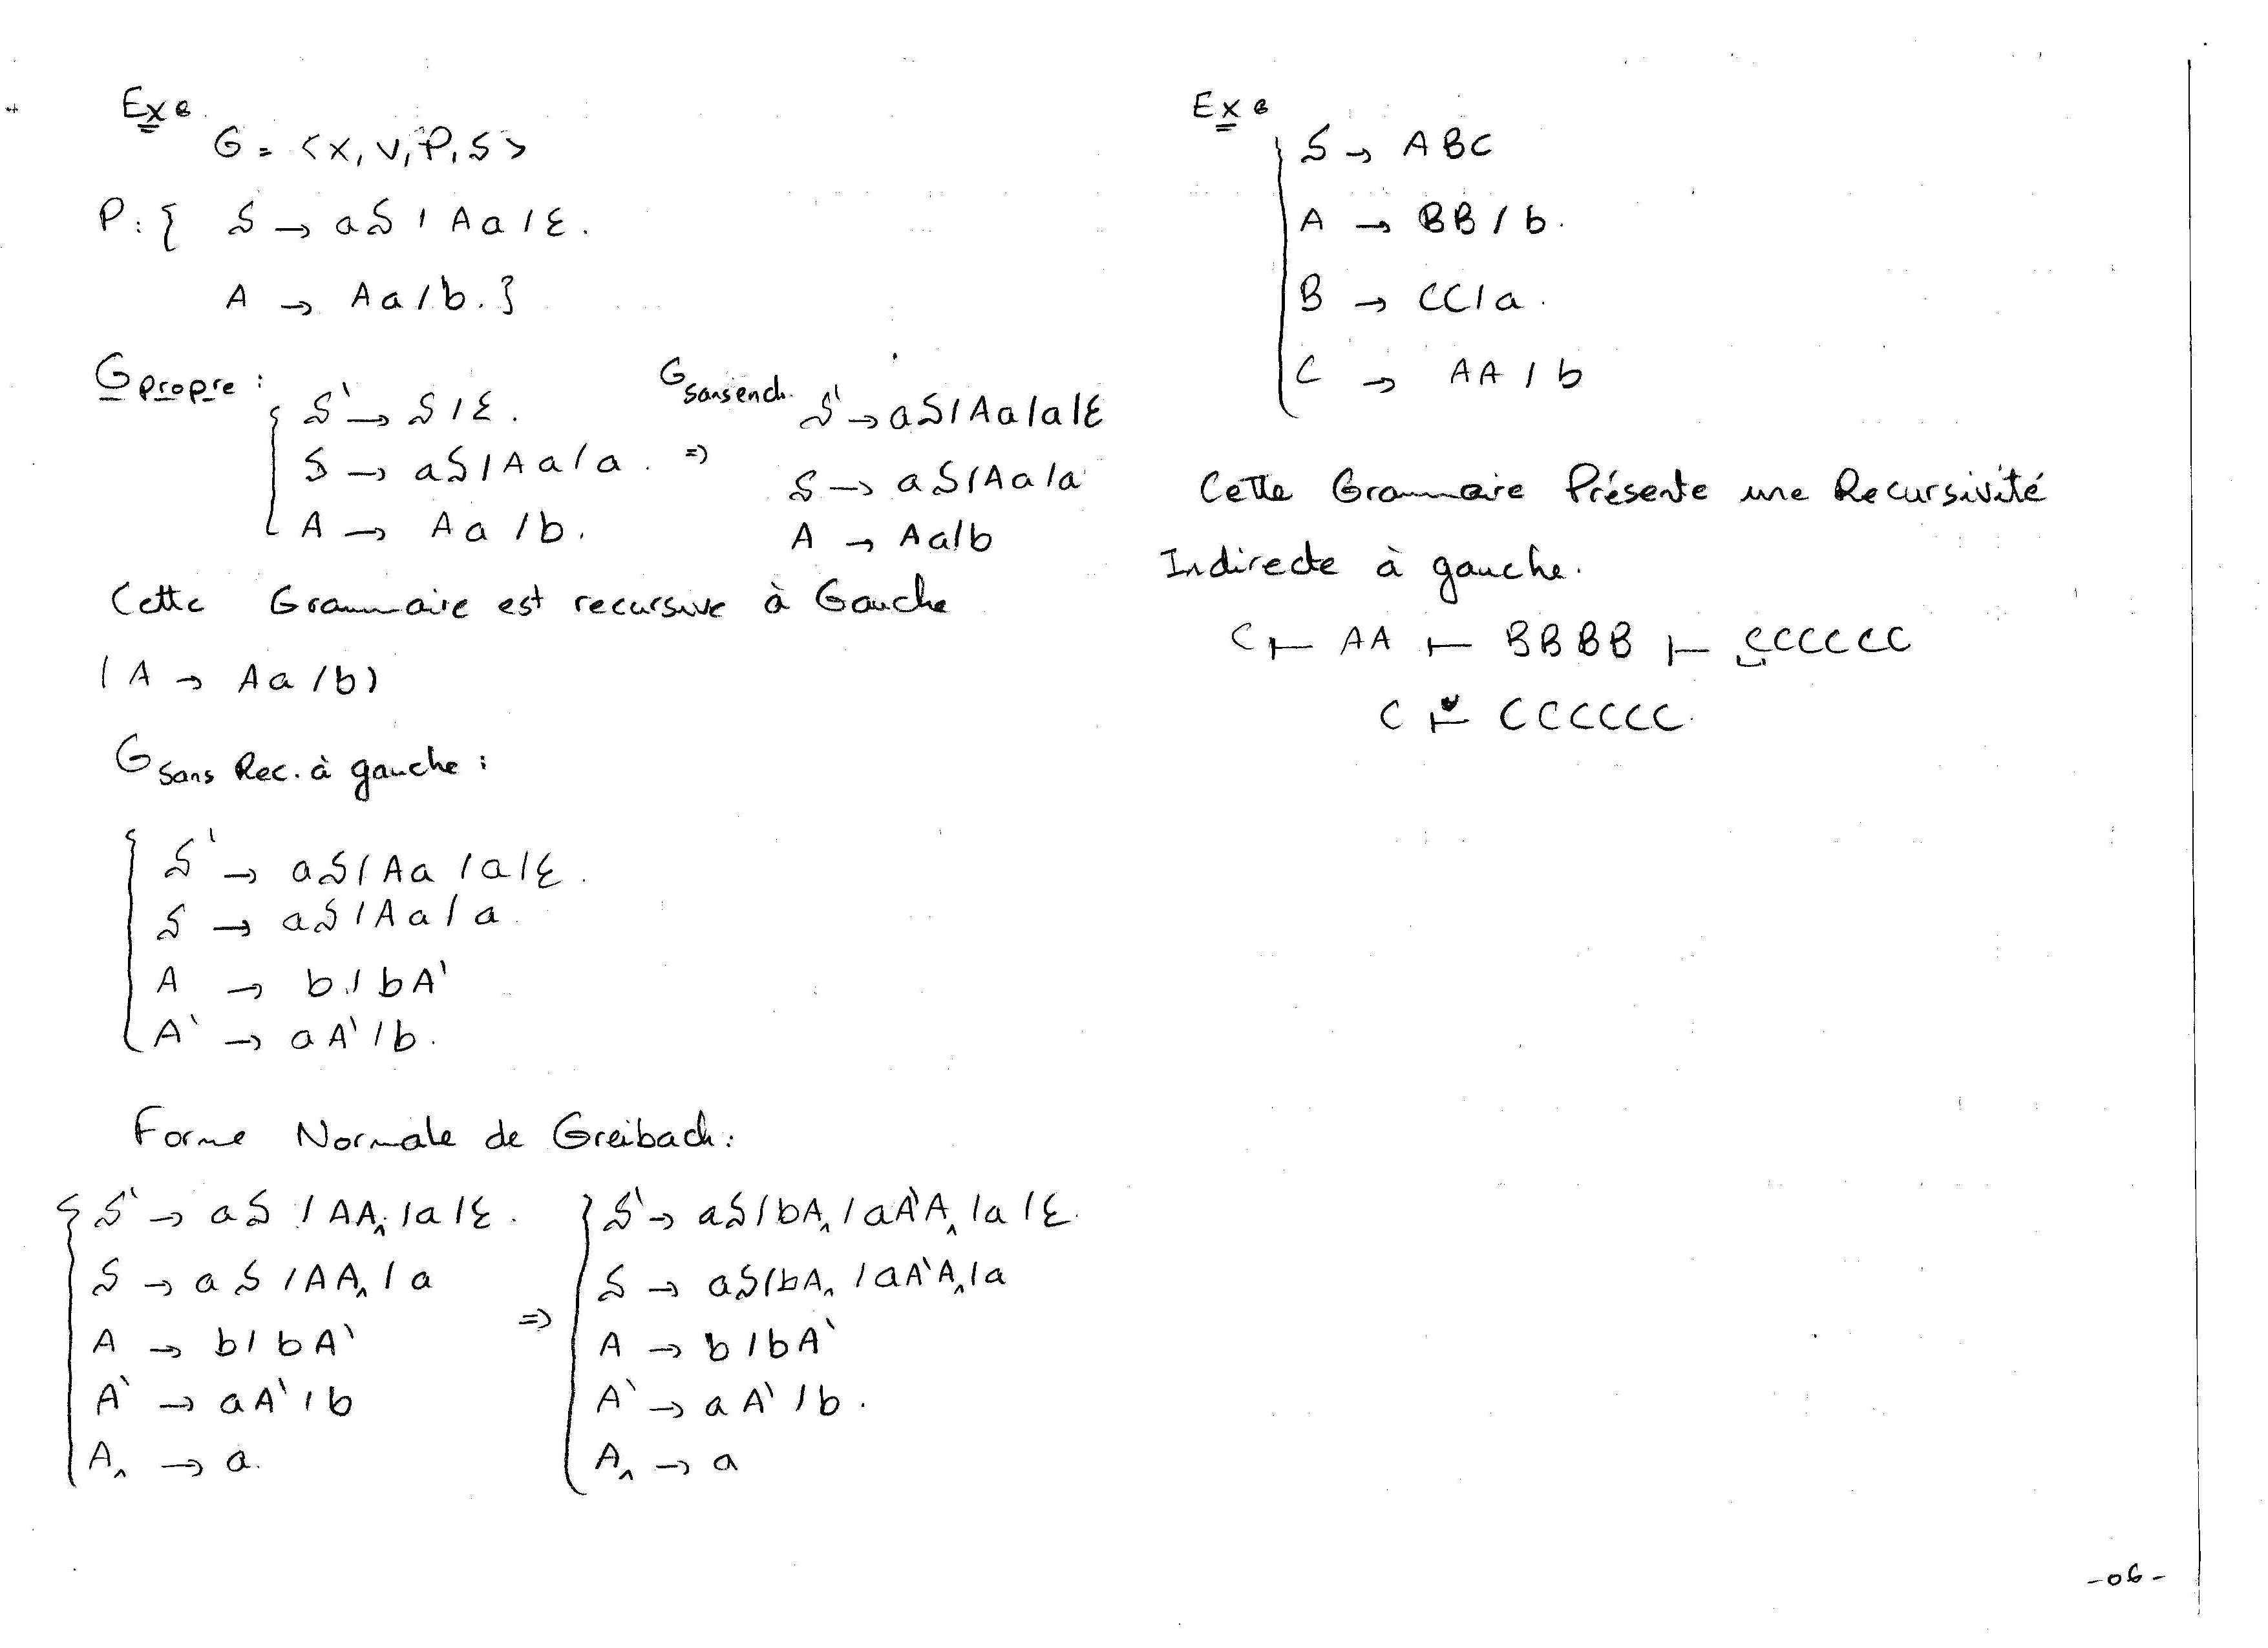 Ex:
G = <X, V, P, S>
P: { S → aS / Aa / ε.
A → Aa / b. }
G propre :
S' → S / ε.
S → aS / Aa / a. ⇒
A → Aa / b.
G sans ench.
S' → aS / Aa / a / ε
S → aS / Aa / a
A → Aa / b
Cette Grammaire est recursive à Gauche
( A → Aa / b )
G sans Rec. à gauche :
S' → aS / Aa / a / ε.
S → aS / Aa / a.
A → b / bA'
A' → aA' / b.
Forme Normale de Greibach :
S' → aS / AA₁ / a / ε.
S → aS / AA₁ / a
A → b / bA'
A' → aA' / b
A₁ → a.
⇒
S' → aS / bA₁ / aA'A₁ / a / ε.
S → aS / bA₁ / aA'A₁ / a
A → b / bA'
A' → aA' / b.
A₁ → a
Ex:
S → ABC
A → BB / b.
B → CC / a.
C → AA / b
Cette Grammaire Présente une Recursivité
Indirecte à gauche.
C ⊢ AA ⊢ BBBB ⊢ CCCCCC
C ⊢* CCCCCC.
-06-